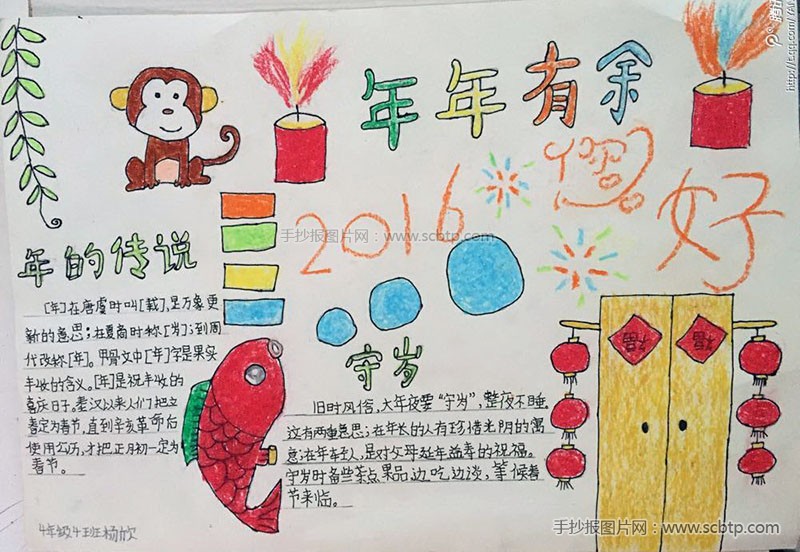 年年有余
2016
您好
手抄报图片网：www.scbtp.com
年的传说
[年]在唐虞时叫[载],是万象更
新的意思;在夏商时称[岁];到周
代改称[年]。甲骨文中[年]字是果实
丰收的含义。[年]是祝丰收的
喜庆日子。秦汉以来人们把立
春定为春节,直到辛亥革命后
使用公历,才把正月初一定为
春节。
守岁
旧时风俗,大年夜要“守岁”,整夜不睡。
这有两重意思;在年长的人有珍惜光阴的寓
意;在年轻人,是对父母延年益寿的祝福。
守岁时备些茶点果品边吃边谈,等候着
节来临。
福
福
4年级4班杨欣
手抄报图片网：www.scbtp.com